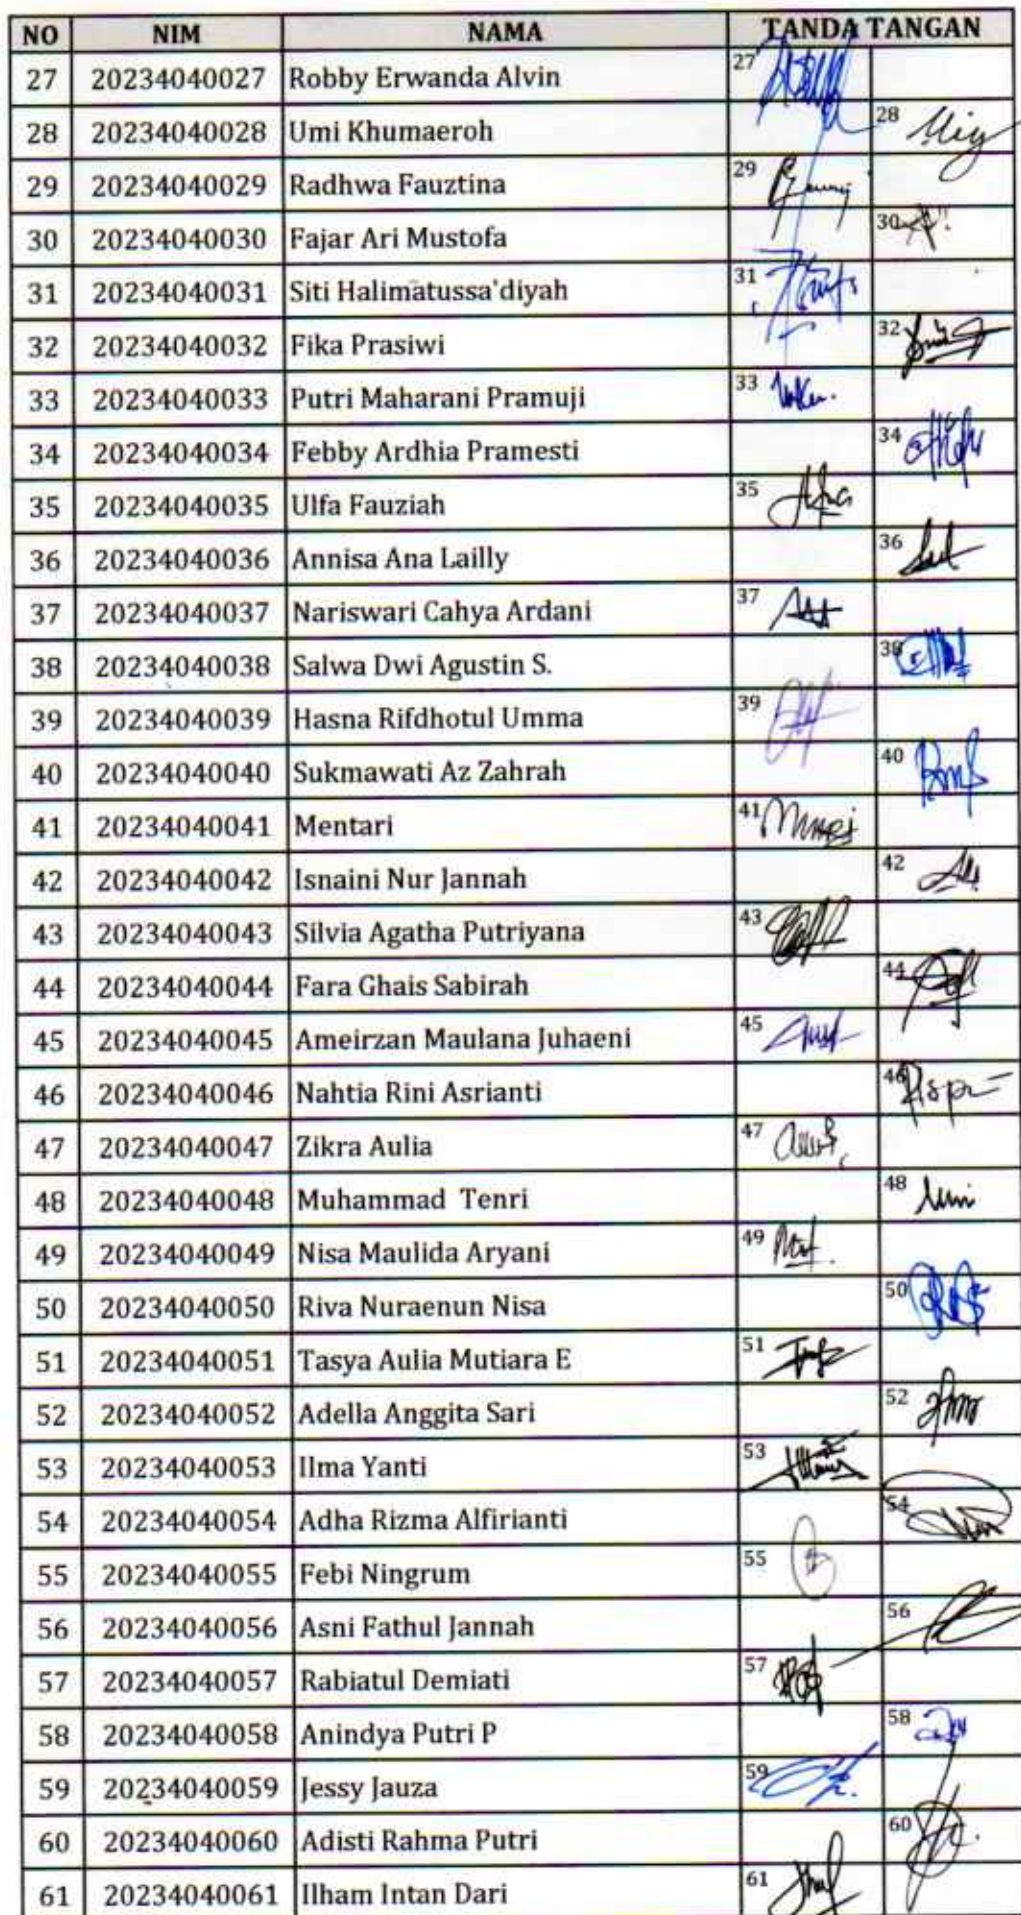 NO NIM NAMA TANDA TANGAN
27 20234040027 Robby Erwanda Alvin 27
28 20234040028 Umi Khumaeroh 28
29 20234040029 Radhwa Fauztina 29
30 20234040030 Fajar Ari Mustofa 30
31 20234040031 Siti Halimatussa'diyah 31
32 20234040032 Fika Prasiwi 32
33 20234040033 Putri Maharani Pramuji 33
34 20234040034 Febby Ardhia Pramesti 34
35 20234040035 Ulfa Fauziah 35
36 20234040036 Annisa Ana Lailly 36
37 20234040037 Nariswari Cahya Ardani 37
38 20234040038 Salwa Dwi Agustin S. 38
39 20234040039 Hasna Rifdhotul Umma 39
40 20234040040 Sukmawati Az Zahrah 40
41 20234040041 Mentari 41
42 20234040042 Isnaini Nur Jannah 42
43 20234040043 Silvia Agatha Putriyana 43
44 20234040044 Fara Ghais Sabirah 44
45 20234040045 Ameirzan Maulana Juhaeni 45
46 20234040046 Nahtia Rini Asrianti 46
47 20234040047 Zikra Aulia 47
48 20234040048 Muhammad Tenri 48
49 20234040049 Nisa Maulida Aryani 49
50 20234040050 Riva Nuraenun Nisa 50
51 20234040051 Tasya Aulia Mutiara E 51
52 20234040052 Adella Anggita Sari 52
53 20234040053 Ilma Yanti 53
54 20234040054 Adha Rizma Alfirianti 54
55 20234040055 Febi Ningrum 55
56 20234040056 Asni Fathul Jannah 56
57 20234040057 Rabiatul Demiati 57
58 20234040058 Anindya Putri P 58
59 20234040059 Jessy Jauza 59
60 20234040060 Adisti Rahma Putri 60
61 20234040061 Ilham Intan Dari 61